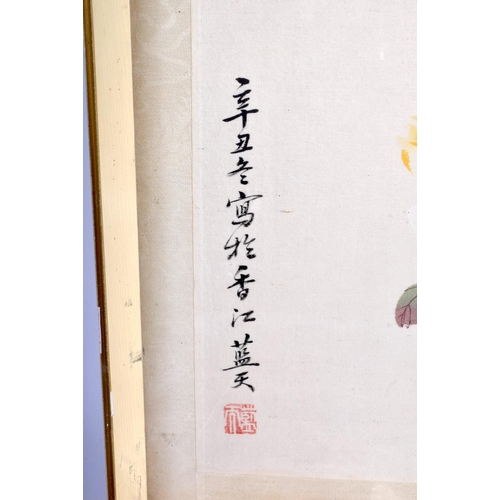 辛丑冬寫於香江藍天
藍天